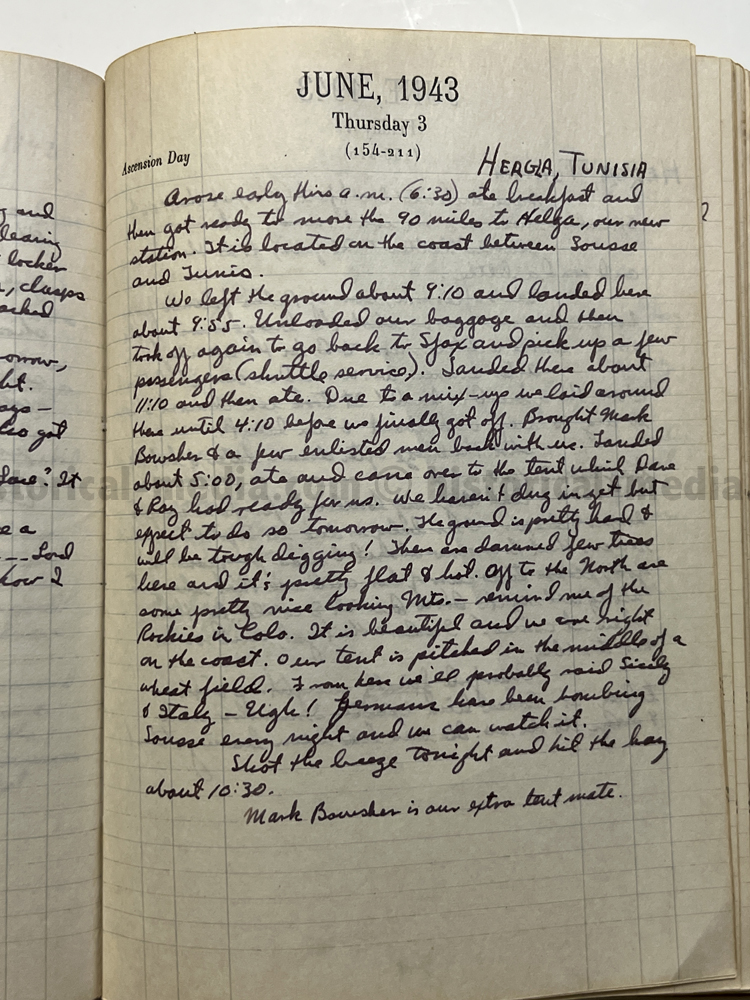 JUNE, 1943
Thursday 3
(154-211)
Ascension Day
HERGLA, TUNISIA
Arose early this a.m. (6:30) ate breakfast and
then got ready to move the 90 miles to Helga, our new
station. It is located on the coast between Sousse
and Tunis.
We left the ground about 9:10 and landed here
about 9:55. Unloaded our baggage and then
took off again to go back to Sfax and pick up a few
passengers (shuttle service). Landed there about
11:10 and then ate. Due to a mix-up we laid around
there until 4:10 before we finally got off. Brought Mark
Bowsher & a few enlisted men back with us. Landed
about 5:00, ate and came over to the tent which Dave
& Ray had ready for us. We haven't dug in yet but
expect to do so tomorrow. The ground is pretty hard &
will be tough digging! There are darned few trees
here and it's pretty flat & hot. Off to the North are
some pretty nice looking Mts. – remind me of the
Rockies in Colo. It is beautiful and we are right
on the coast. Our tent is pitched in the middle of a
wheat field. From here we'll probably raid Sicily
& Italy – Ugh! Germans have been bombing
Sousse every night and we can watch it.
Shot the breeze tonight and hit the hay
about 10:30.
Mark Bowsher is our extra tent mate.
y and
locker
, clasps
orrow,
ht.
? It
e a
Lord
how I